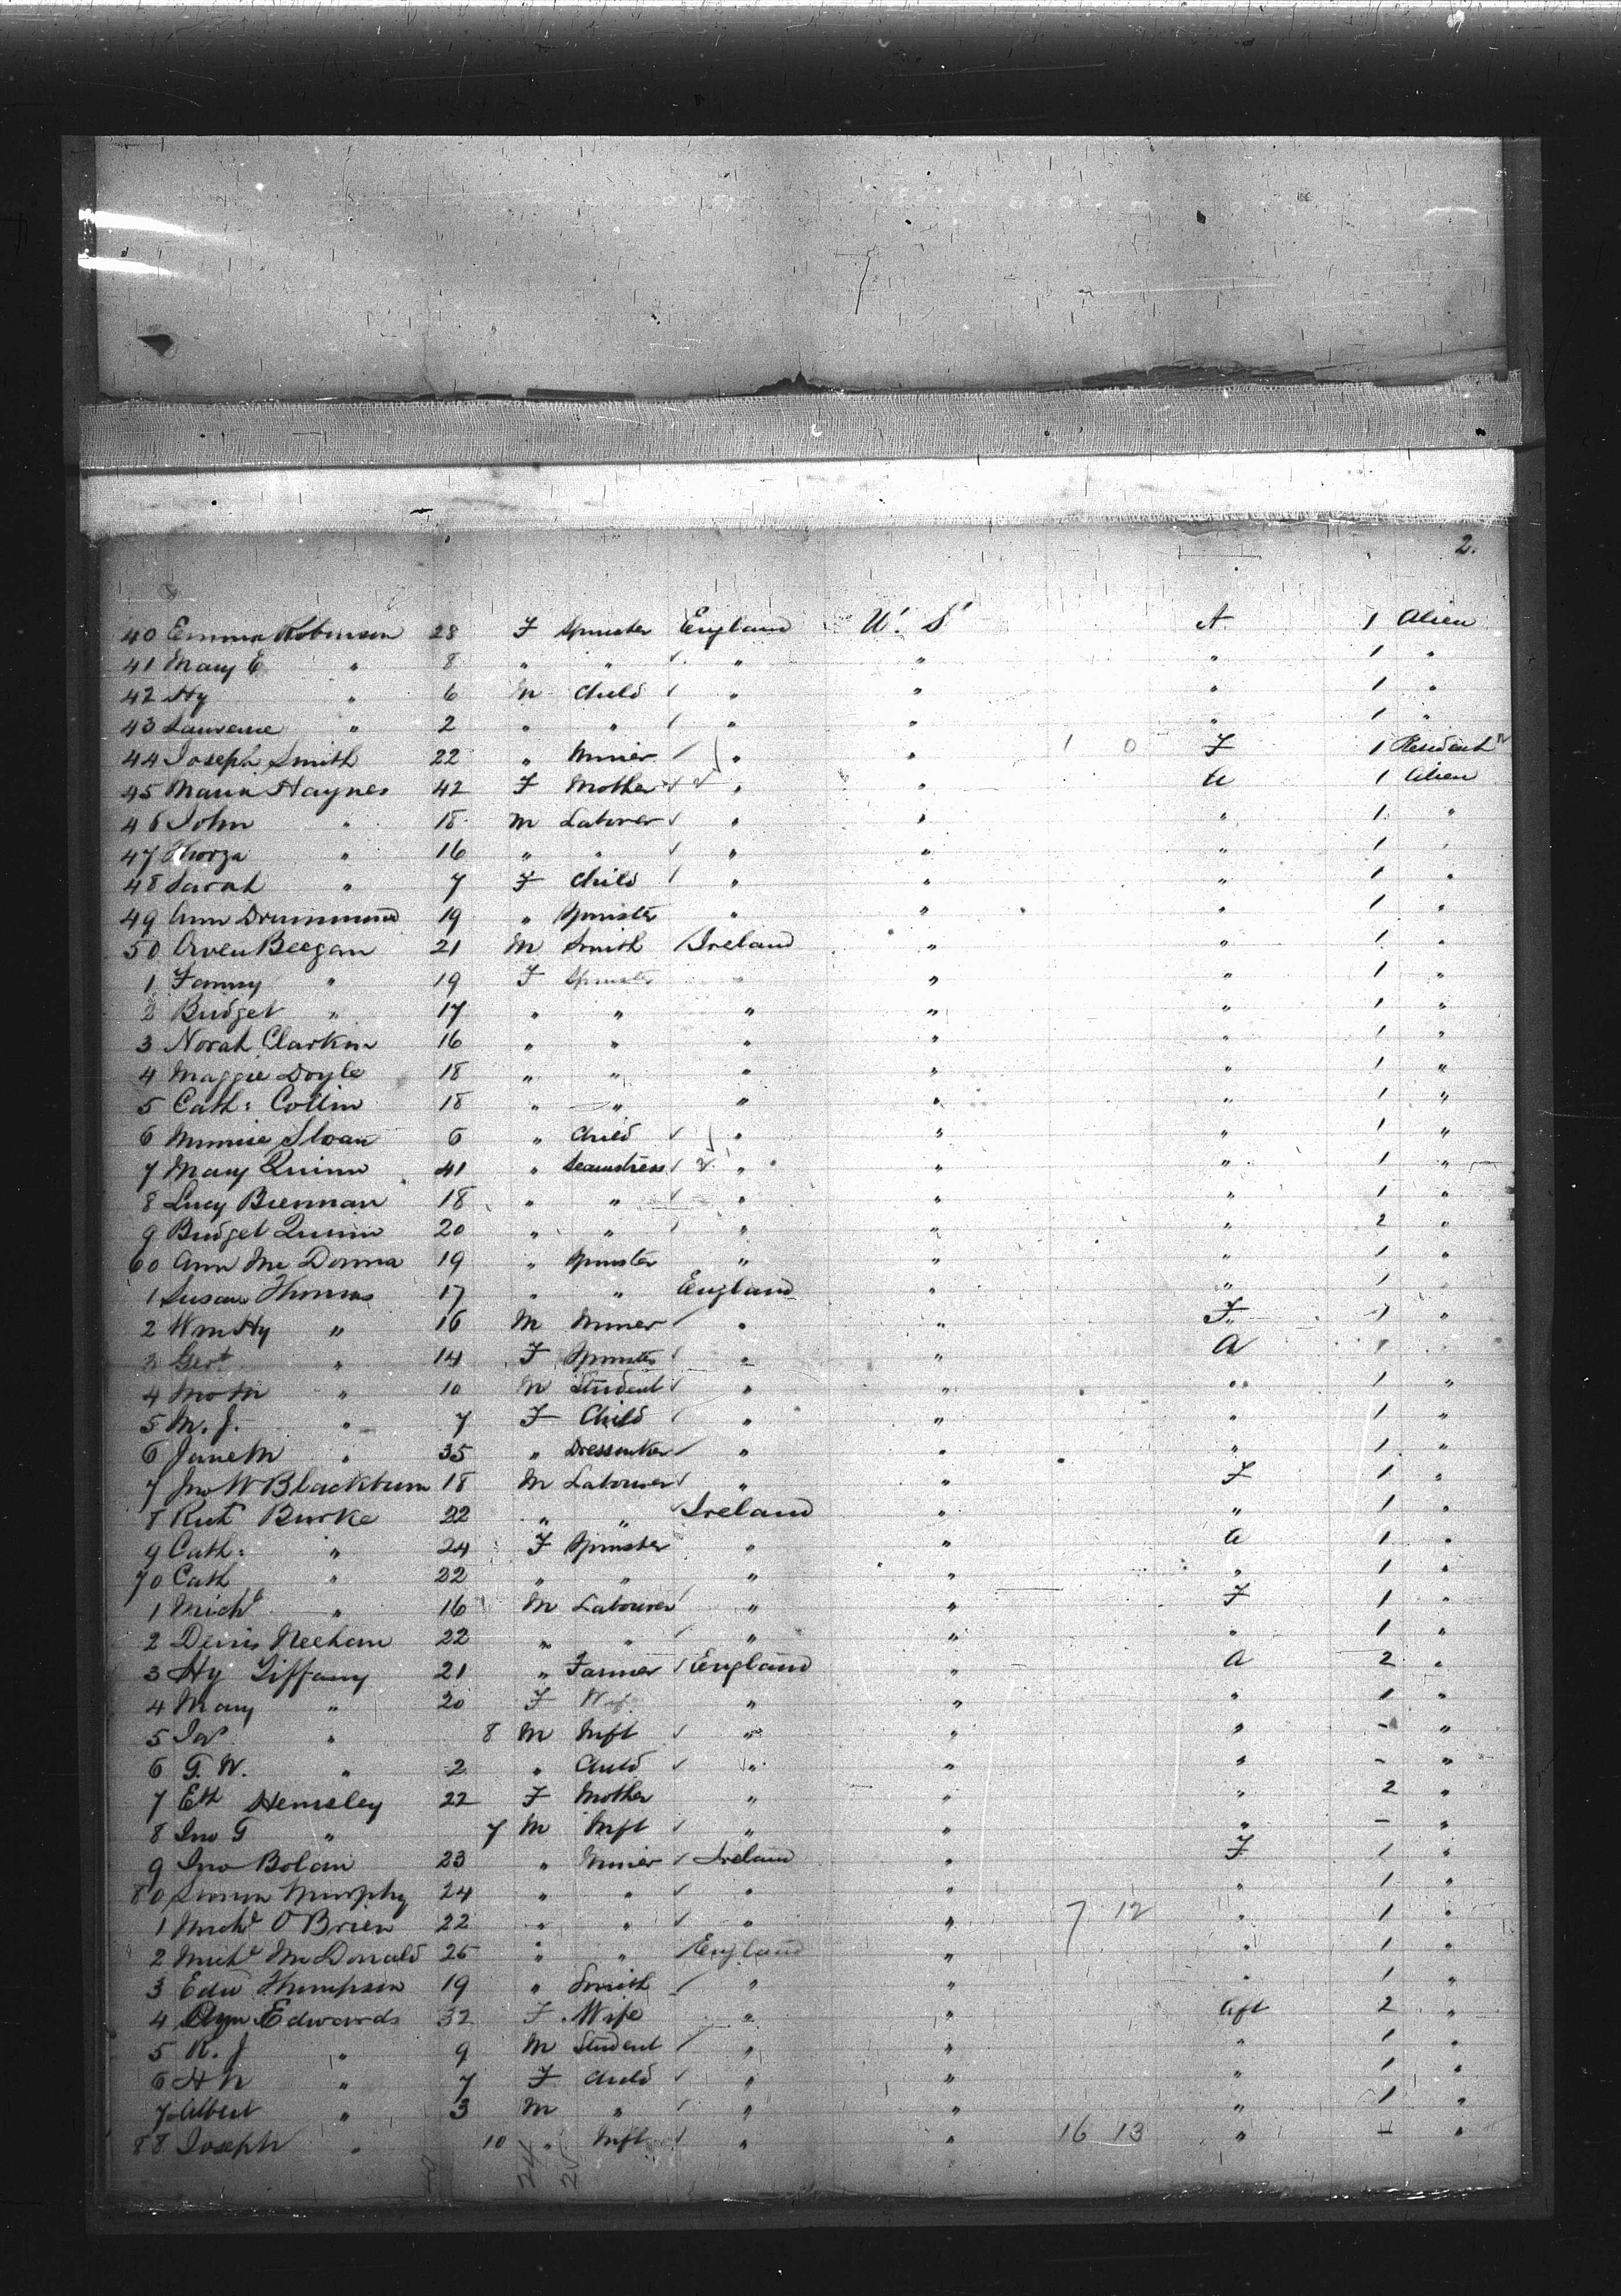 2.
40 Emma Robinson 28 F Spinster England U.S. A 1 Alien
41 Mary E " 8 " " ✓ " " " 1 "
42 Hy " 6 M Child ✓ " " " 1 "
43 Laurence " 2 " " ✓ " " " 1 "
44 Joseph Smith 22 " Miner ✓ " " 1 0 F 1 Resident
45 Maria Haynes 42 F Mother ✓ 2 " " A 1 Alien
46 John " 18 M Laborer ✓ " " " 1 "
47 " 16 " " ✓ " " " 1 "
48 Sarah " 7 F Child ✓ " " " 1 "
49 Ann Drummond 19 " Spinster " " " 1 "
50 Owen Beegan 21 M Smith ✓ Ireland " " 1 "
1 Fanny " 19 F Spinster " " " 1 "
2 Bridget " 17 " " " " " 1 "
3 Norah Clarkin 16 " " " " " 1 "
4 Maggie Doyle 18 " " " " " 1 "
5 Cath: Collin 18 " " " " " 1 "
6 Minnie Sloan 6 " Child ✓ " " " 1 "
7 Mary Quinn 41 " Seamstress ✓ 2 " " " 1 "
8 Lucy Brennan 18 " " ✓ " " " 1 "
9 Bridget Quinn 20 " " ✓ " " " 2 "
60 Ann Mc Donna 19 " Spinster " " " 1 "
1 Susan Thomas 17 " " England " " 1 "
2 Wm Hy " 16 M Miner ✓ " " F 1 "
3 Gert " 14 F Spinster ✓ " " A 1
4 Jno M " 10 M Student ✓ " " " 1 "
5 M. J. " 7 F Child ✓ " " " 1 "
6 Jane M " 35 " Dressmker ✓ " " " 1 "
7 Jno W Blackburn 18 M Labourer ✓ " " F 1 "
8 Burke 22 " " Ireland " " 1 "
9 Cath: " 24 F Spinster " " A 1 "
70 Cath " 22 " " " " " 1 "
1 Michl " 16 M Labourer ✓ " " F 1 "
2 Denis Meehan 22 " " ✓ " " " 1 "
3 Hy Tiffany 21 " Farmer ✓ England " A 2 "
4 Mary " 20 F Wife " " " 1 "
5 Jas " 8 M Inft ✓ " " " - "
6 G. W. " 2 " Child ✓ " " " - "
7 Eth Hemsley 22 F Mother " " " 2 "
8 Jno G " 7 M Inft ✓ " " " - "
9 Jno Bolan 23 " Miner ✓ Ireland " F 1 "
80 Murphy 24 " " ✓ " " " 1 "
1 Michl O'Brien 22 " " ✓ " " 7 12 " 1 "
2 Michl McDonald 25 " " England " " 1 "
3 Edw Thompson 19 " Smith ✓ " " " 1 "
4 Edwards 32 F Wife " " Aft 2 "
5 R. J " 9 M Student ✓ " " " 1 "
6 H N " 7 F Child ✓ " " " 1 "
7 Albert " 3 M " ✓ " " " 1 "
88 Joseph " 10 " Inft ✓ " " 16 13 " - "